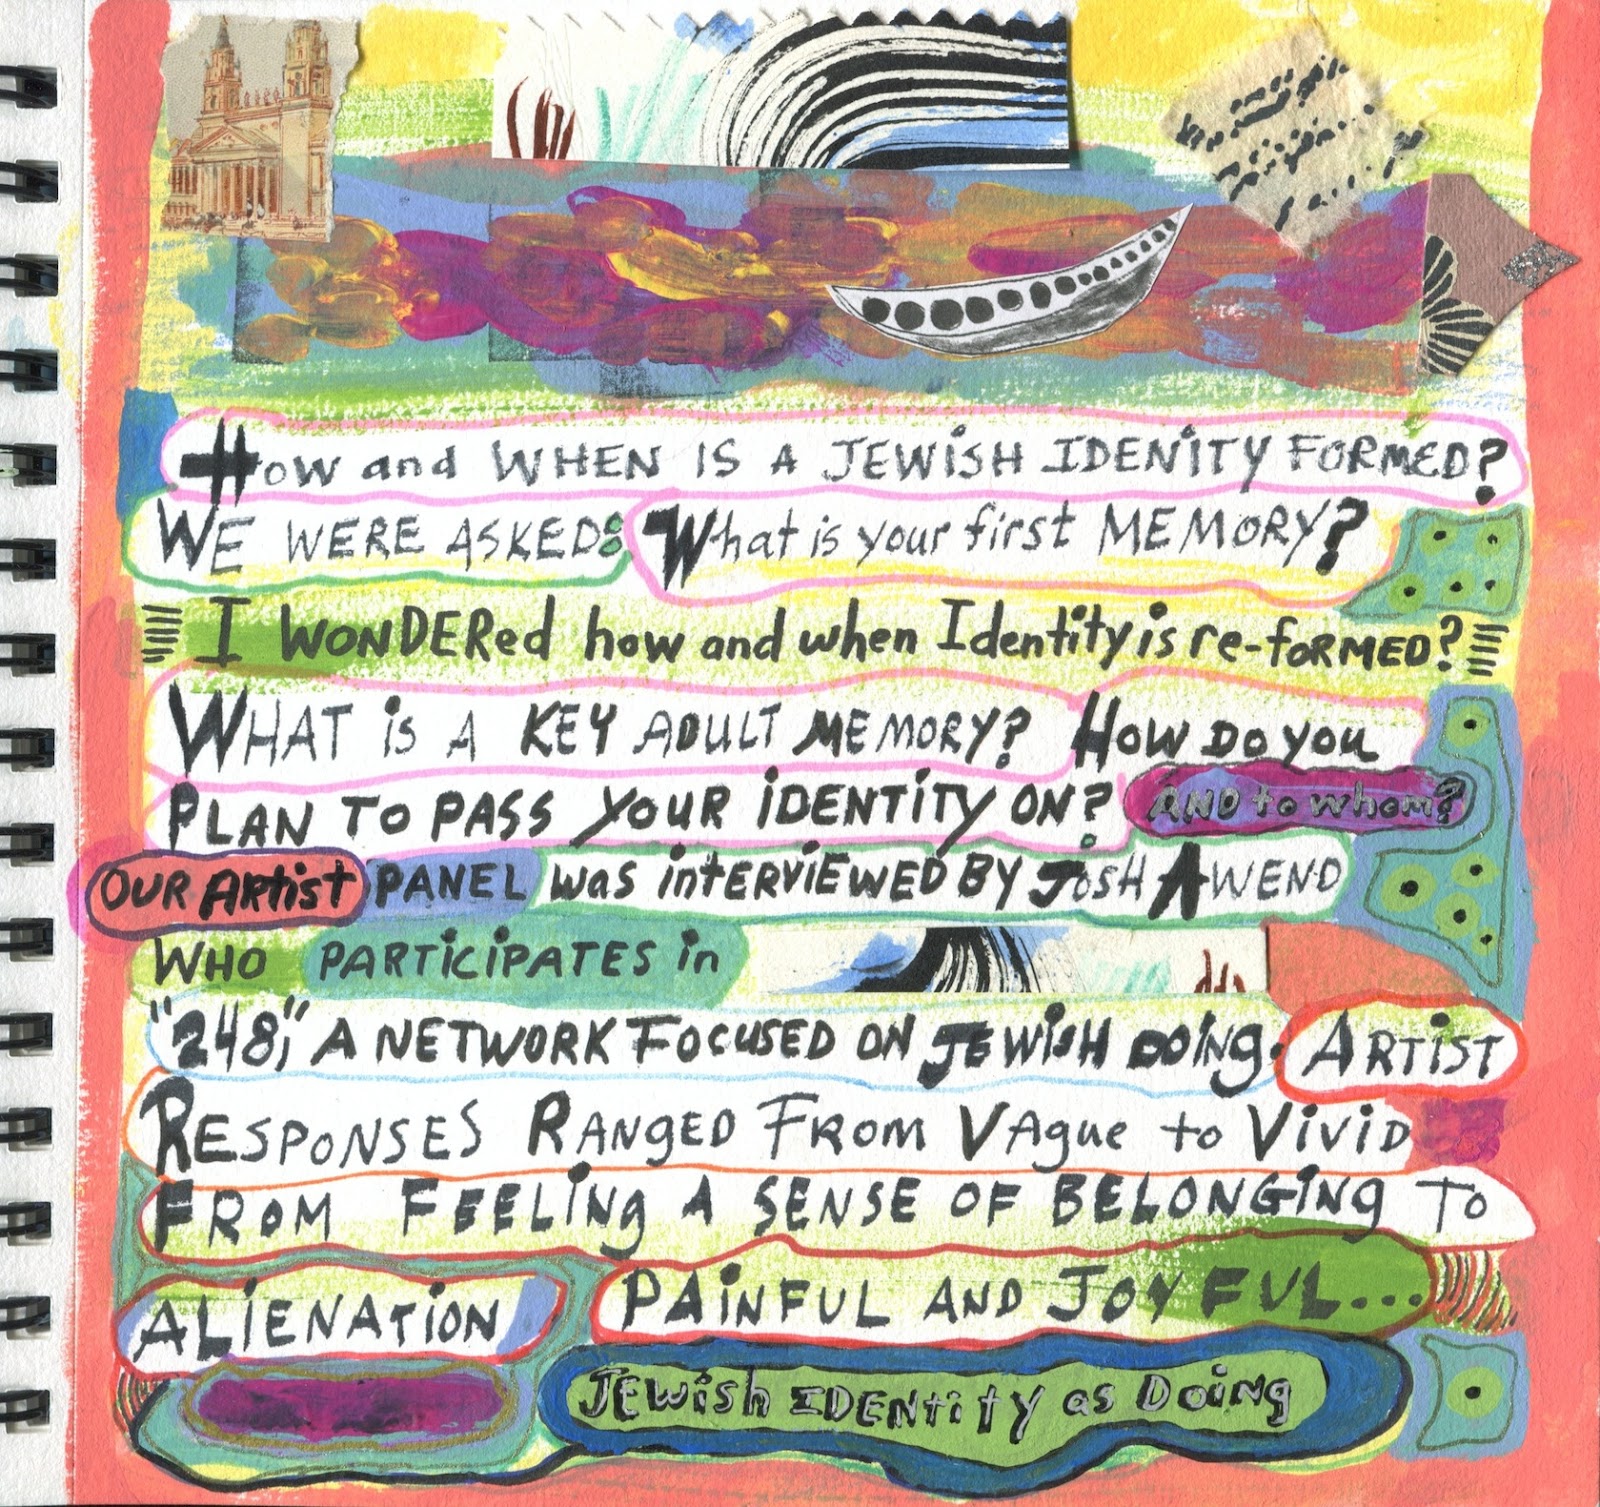 How and WHEN IS A JEWISH IDENITY FORMED?
WE WERE ASKED: What is your first MEMORY?
I WONDERed how and when Identity is re-FORMED?
WHAT is A KEY ADULT MEMORY? HOW DO YOU
PLAN TO PASS YOUR IDENTITY ON? AND to whom?
OUR ARTist PANEL was iNTERVIEWED BY JOSH AWEND
WHO PARTICIPATES in
"248," A NETWORK FOCUSED ON JEWISH DOING. ARTIST
RESPONSES RANGED FROM VAgue to VIVID
FROM FEELING A SENSE OF BELONGING TO
ALIENATION PAINFUL AND JOYFUL...
JEWish IDENtity as Doing